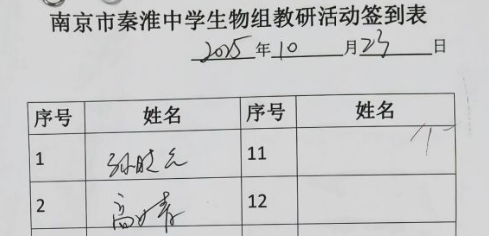 南京市秦淮中学生物组教研活动签到表
2025 年 10 月 23 日
序号 姓名 序号 姓名
1 11
2 12